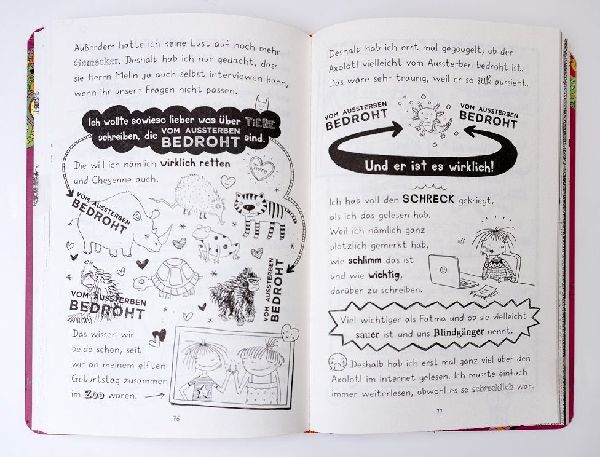 Außerdem hatte ich keine Lust auf noch mehr
Deshalb hab ich nur gedacht, dass
sie Herrn Melin ja auch selbst interviewen kann,
wenn ihr unsere Fragen nicht passen.
Ich wollte sowieso lieber was über TIERE
schreiben, die VOM AUSSTERBEN BEDROHT sind.
Die will ich nämlich wirklich retten
und Cheyenne auch.
VOM AUSSTERBEN
BEDROHT
VOM AUSSTERBEN
BEDROHT
VOM AUSSTERBEN
BEDROHT
Das wissen wir
beide schon, seit
wir an meinem elften
Geburtstag zusammen
im Zoo waren.
76
Deshalb hab ich erst mal gegoogelt, ob der
Axolotl vielleicht vom Aussterben bedroht ist.
Das wäre sehr traurig, weil er so süß aussieht.
VOM AUSSTERBEN
BEDROHT
VOM AUSSTERBEN
BEDROHT
Und er ist es wirklich!
Ich hab voll den SCHRECK gekriegt,
als ich das gelesen hab.
Weil ich nämlich ganz
plötzlich gemerkt hab,
wie schlimm das ist
und wie wichtig,
darüber zu schreiben.
Viel wichtiger als Fatma und ob sie vielleicht
sauer ist und uns Blindgänger nennt.
Deshalb hab ich erst mal ganz viel über den
Axolotl im Internet gelesen. Ich musste einfach
immer weiterlesen, obwohl es so schrecklich war.
77